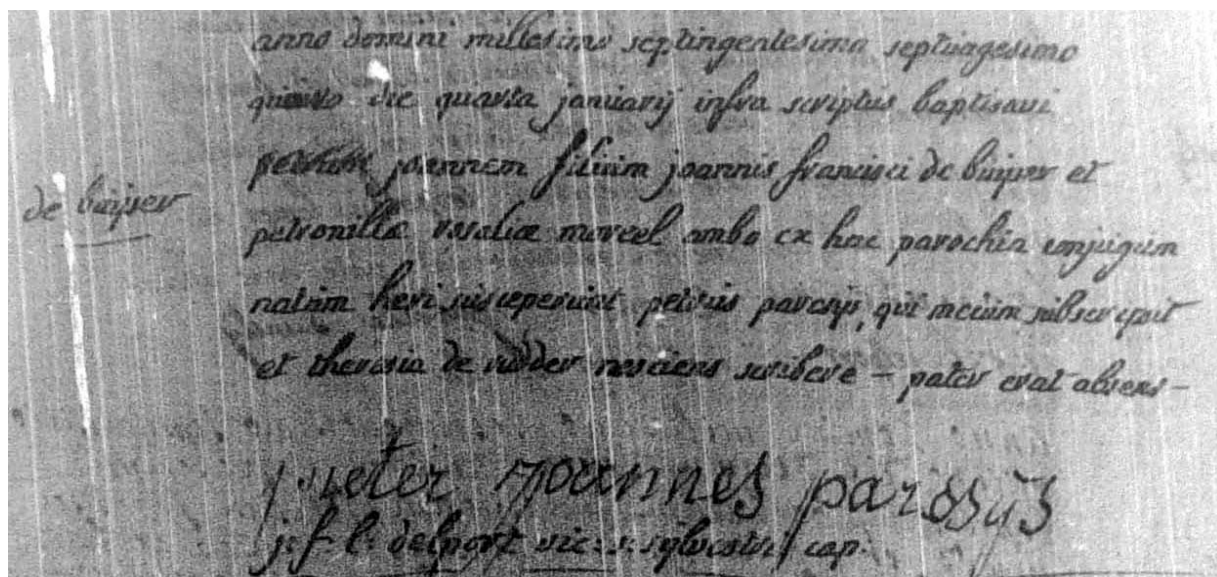 anno domini millesimo septingentesimo septuagesimo
quinto die quarta januarij infra scriptus baptisavi
petrum joannem filium joannis francisci de buijser et
de buijser
petronillæ rosaliæ morcel ambo ex hac parochia conjugum
natum heri susceperunt petrus parasijs, qui mecum subscripsit
et theresia de ridder nesciens scribere – pater erat absens –
pieter joannes parssijs
j: f: l: delport vic: s: sylvestri cap: